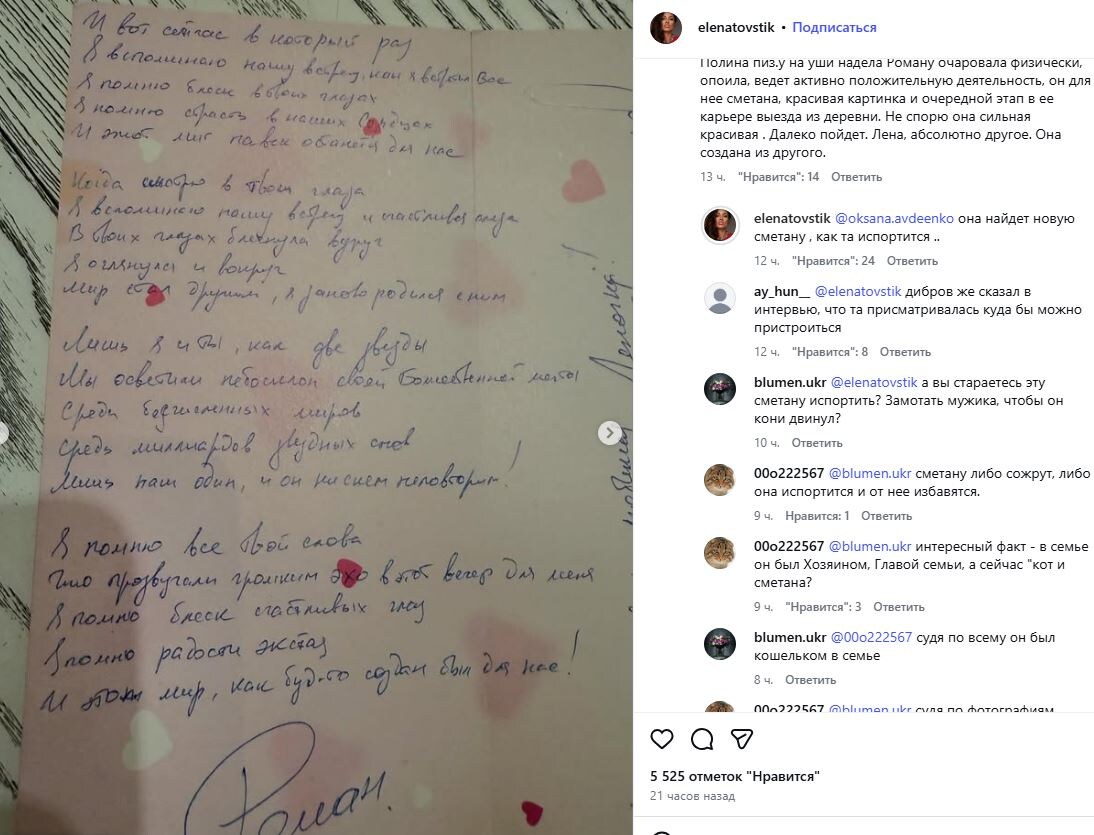 И вот сейчас в который раз
Я вспоминаю нашу встречу, как я встретил Вас
Я помню блеск в твоих глазах
Я помню страсть в наших Сердцах
И этот миг навек останется для нас
Когда смотрю в твои глаза
Я вспоминаю нашу встречу и счастливая слеза
В твоих глазах блеснула вдруг
Я оглянулся и вокруг
Мир стал другим, я заново родился с ним
Лишь я и ты, как две звезды
Мы осветили небосклон своей Божественной мечты
Среди бесчисленных миров
Средь миллиардов звездных снов
Лишь наш один, и он ни с кем неповторим!
Я помню все твои слова
Что прозвучали громким эхо в этот вечер для меня
Я помню блеск счастливых глаз
Я помню радости экстаз
И этот мир, как будто создан был для нас!
Роман.
Леночки!
elenatovstik • Подписаться
Полина пиз.у на уши надела Роману очаровала физически,
опоила, ведет активно положительную деятельность, он для
нее сметана, красивая картинка и очередной этап в ее
карьере выезда из деревни. Не спорю она сильная
красивая . Далеко пойдет. Лена, абсолютно другое. Она
создана из другого.
13 ч. "Нравится": 14 Ответить
elenatovstik @oksana.avdeenko она найдет новую
сметану , как та испортится ..
12 ч. "Нравится": 24 Ответить
ay_hun__ @elenatovstik дибров же сказал в
интервью, что та присматривалась куда бы можно
пристроиться
12 ч. "Нравится": 8 Ответить
blumen.ukr @elenatovstik а вы стараетесь эту
сметану испортить? Замотать мужика, чтобы он
кони двинул?
10 ч. Ответить
00o222567 @blumen.ukr сметану либо сожрут, либо
она испортится и от нее избавятся.
9 ч. Нравится: 1 Ответить
00o222567 @blumen.ukr интересный факт - в семье
он был Хозяином, Главой семьи, а сейчас "кот и
сметана?
9 ч. "Нравится": 3 Ответить
blumen.ukr @00o222567 судя по всему он был
кошельком в семье
8 ч. Ответить
00o222567 @blumen.ukr судя по фотографиям
5 525 отметок "Нравится"
21 часов назад